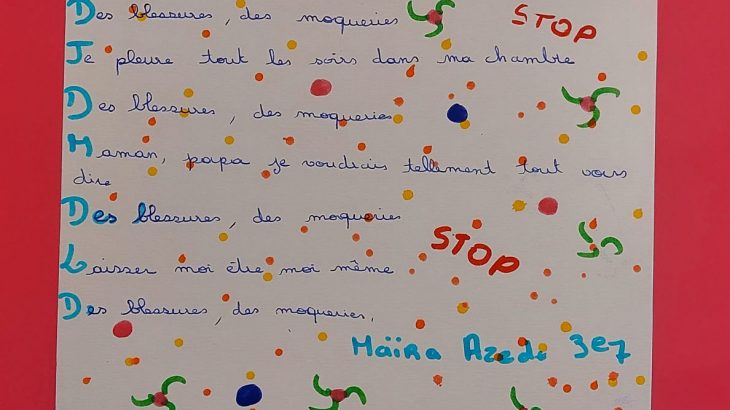 Des blessures, des moqueries
STOP
Je pleure tout les soirs dans ma chambre
Des blessures, des moqueries
Maman, papa je voudrais tellement tout vous
dire
Des blessures, des moqueries
STOP
Laisser moi être moi même
Des blessures, des moqueries.
Maïra 3e7